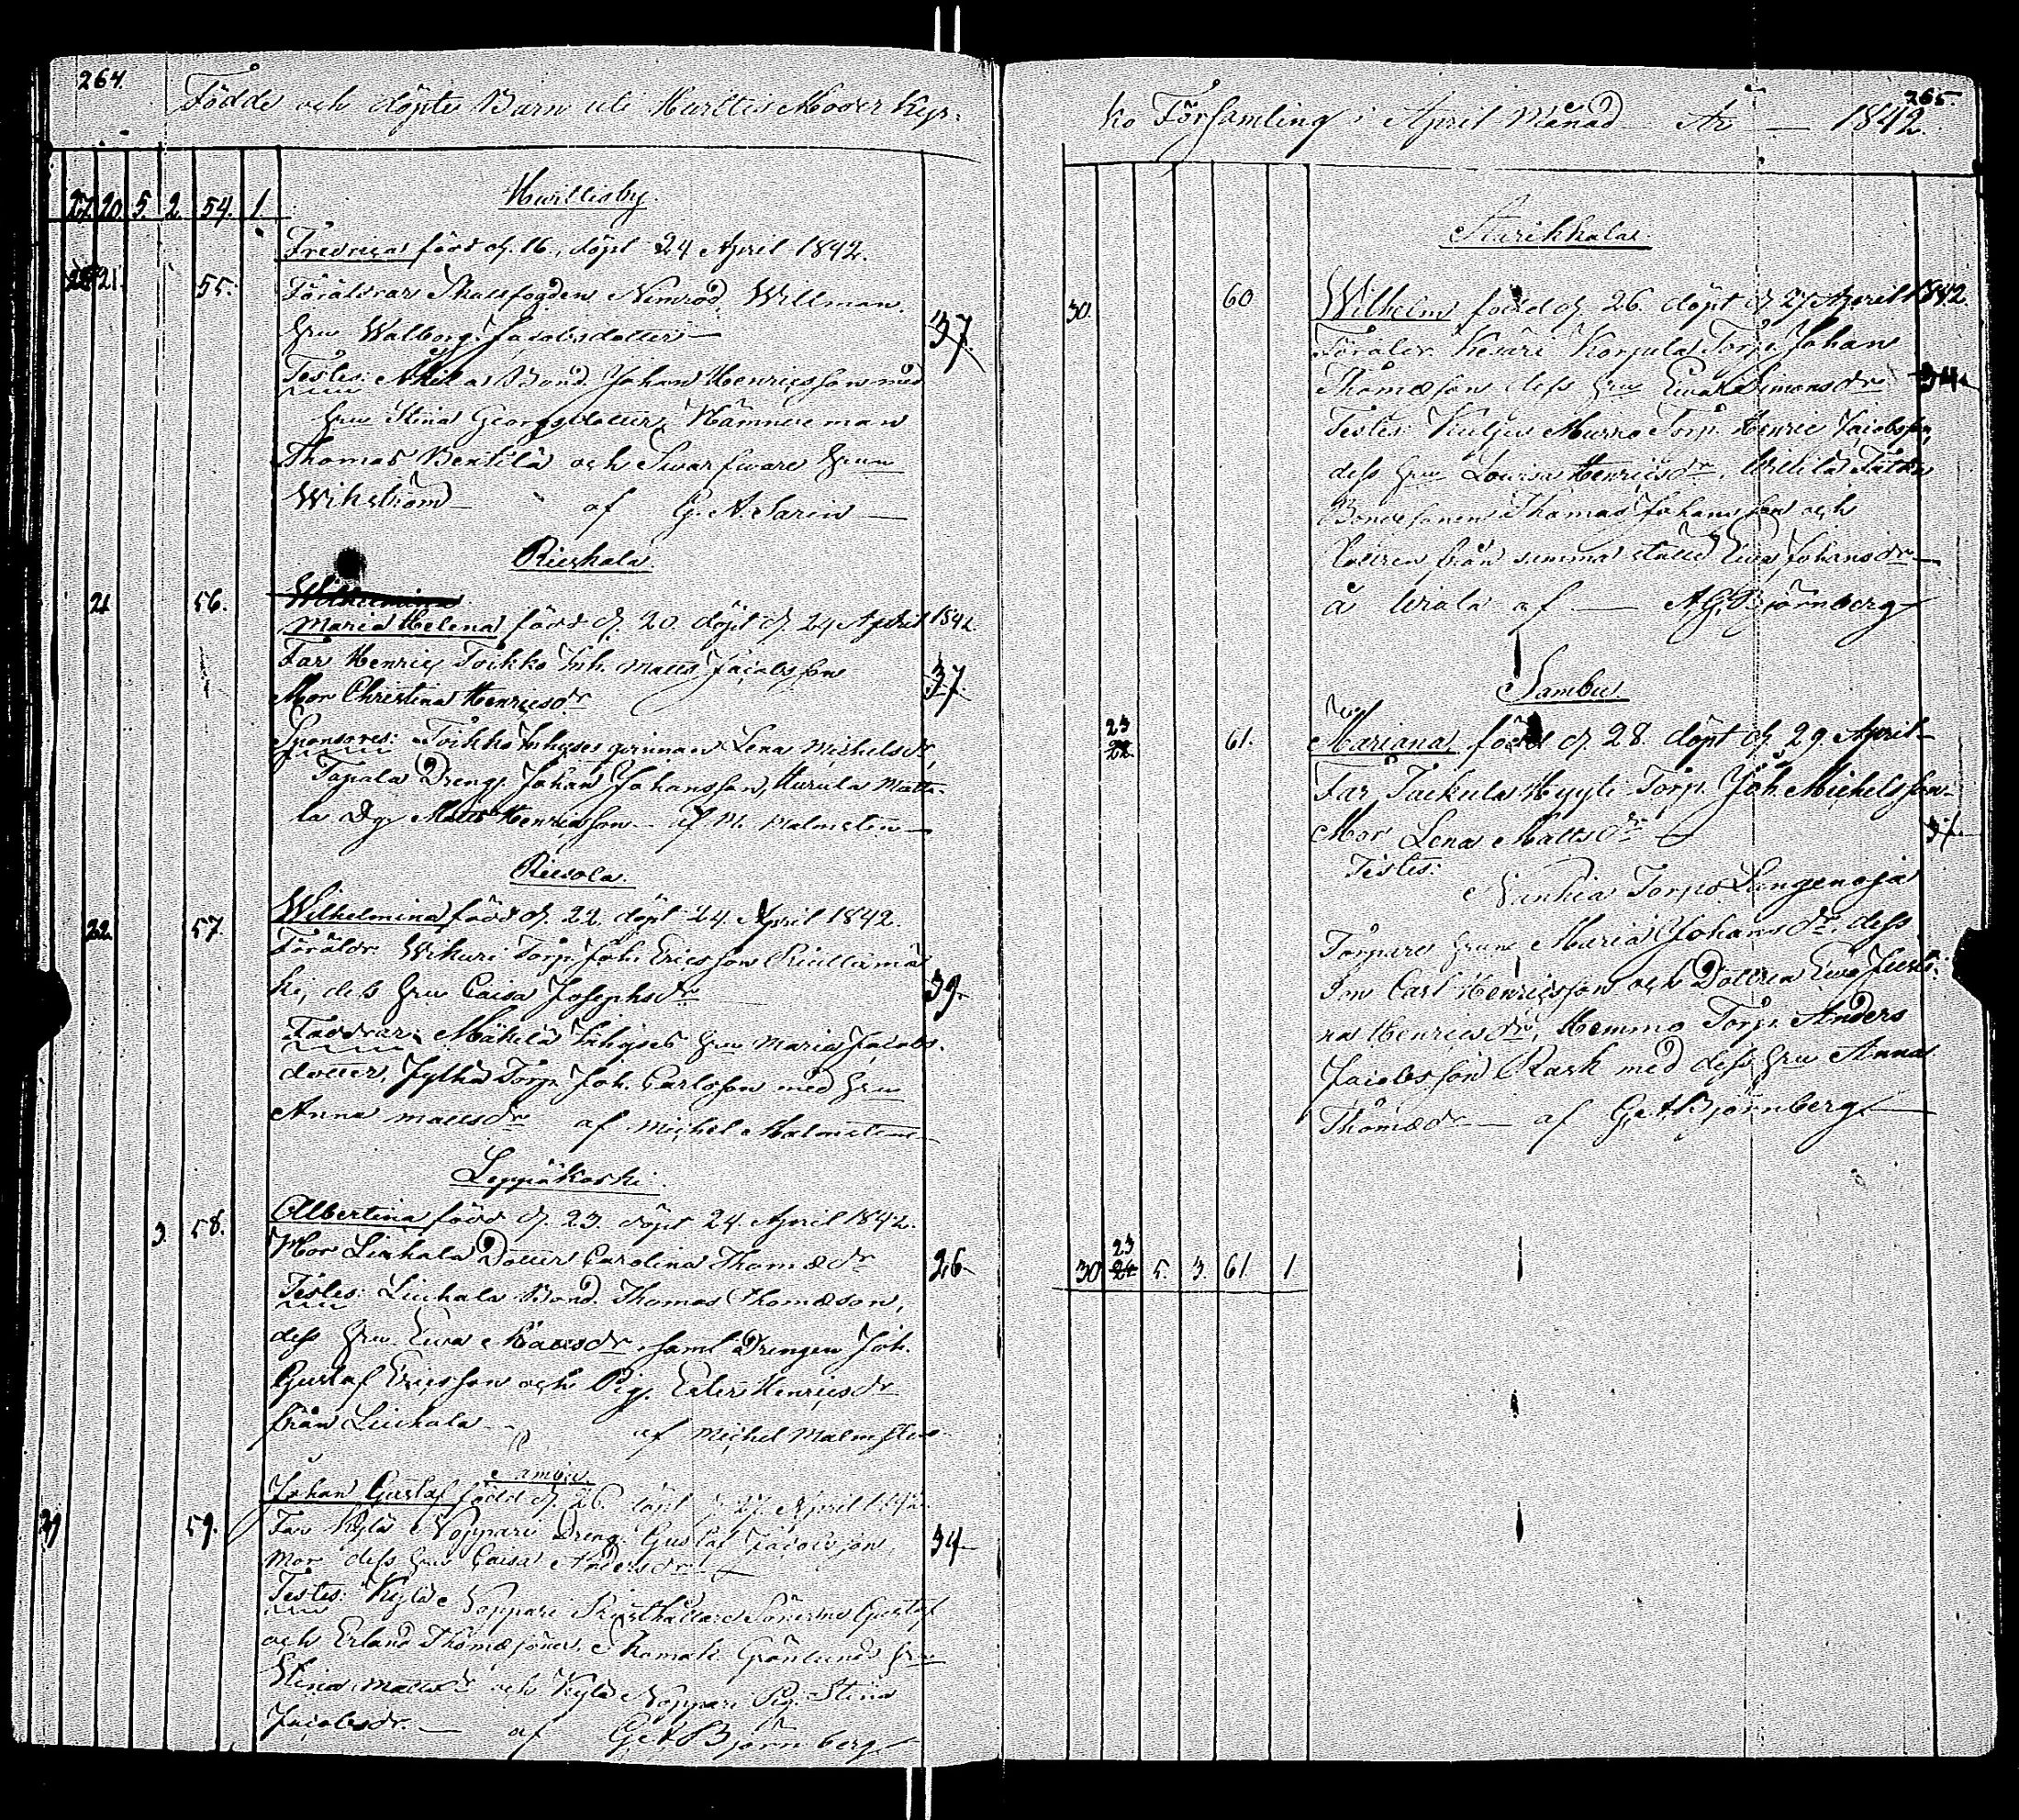 264.
Födde och döpte Barn uti Hurttis Moder Kyr-
27. 20. 5. 2. 54. 1
Hurttisby.
Fredrica född d. 16, döpt 24 April 1842.
21. 55. Föräldrar Skallfogden Nimrod Willman.
hru Walborg Jacobsdotter — 37
Testes: Bond. Johan Henricsson med
hru Stina Georgsdotter, Hämmere man
Thomas Benttilä och Swarfware hrun
Wikström — af G. A. Sarin —
Rieskala.
21 56. Wilhelmina
Maria Helena född d. 20 döpt d. 24 April 1842.
Far Henric Toikko Inh. Matts Jacobsson
Mor Christina Henricsdr 37.
Sponsores: Toikko Inhyses qvinnan Lena Michelsdr,
Tapala Dreng. Johan Johansson, Hurula Matti-
la Dg. Matts Henricsson — af M. Malmsten —
Riisola.
22. 57. Wilhelmina född d. 22. döpt 24. April 1842.
Föräldr. Wikuri Torp. Joh. Ericsson
ki, dess hru Caisa Josephsdr 39.
Faddrar: Mäkelä Inhyses hru Maria Jacobs-
dotter, Jylhä Torp. Joh. Carlsson med hru
Anna Mattsdr af Michel Malmsten —
Leppäkoski.
3. 58. Albertina född d. 23. döpt 24. April 1842.
Mor Liuhala Dotter Carolina Thomædr 26
Testes: Liuhala Bond. Thomas Thomæson,
dess hru Ewa Mattsdr, samt Drengen Joh.
Gustaf Ericsson och Pig. Ester Henricsdr
från Liuhala — af Michel Malmsten
Sambu.
Johan Gustaf född d. 26 döpt d. 27. April 1842.
29 59. Far Kylä Noppari Dreng. Gustaf Jacobsson, 34
Mor dess hru Caisa Andersdr.
Testes: Kylä Noppari Sönerne Gustaf
och Erland Thomæsöner, Grönlunds hru
Stina Mattsdr och Kylä Noppari Pig. Stina
Jacobsdr. — af G. A. Björnberg
265.
ko Församling i April Månad År — 1842.
Starikkala.
30. 60 Wilhelm född d. 26. döpt d. 27 April 1842.
Föräldr. Kesäri Korpula Torp. Johan
Thomæson dess hru Ewa Simonsdr 34.
Testes: Murro Torp. Henric Jacobsson,
dess hru Lowisa Henricsdr,
Bondesonen Thomas Johansson och
Dottren från samma ställe Ewa Johansdr —
å Urala af — A G Björnberg
Sambu.
23 22. 61. Mariana född d. 28. döpt d. 29. April —
Far Hyyti Torp. Joh. Michelsson
Mor Lena Mattsdr — 37
Testes:
Torp. Langenoja
Torpare hrun Maria Johansdr, dess
Son Carl Henricsson och Dottren Ewa Justi-
na Henricsdr, Hemmo Torp. Anders
Jacobsson Rask med dess hru Anna
Thomædr — af G. A. Björnberg
30 23 22 5. 3. 61. 1